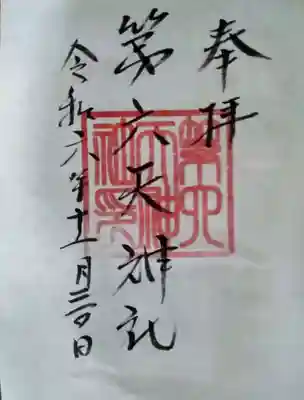 奉拝
第六天神社
令和六年十一月三十日